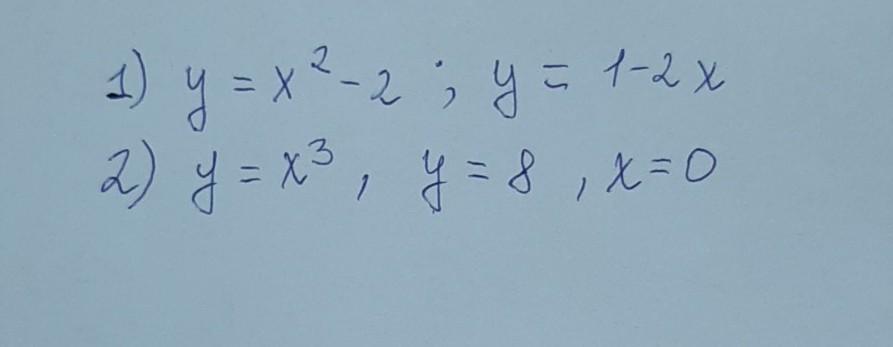 1) y = x² - 2 ; y = 1 - 2x
2) y = x³ , y = 8 , x = 0